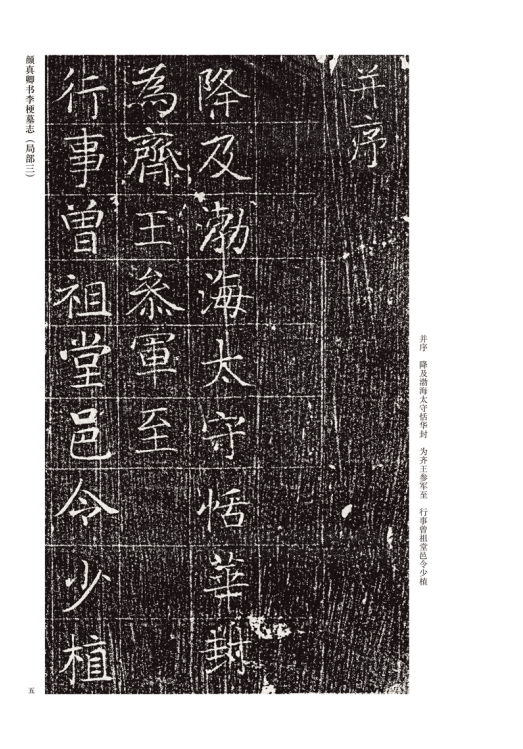 并序
降及渤海太守恬華封
為齊王叅軍至
行事曾祖堂邑令少植
并序　降及渤海太守恬华封　为齐王参军至　行事曾祖堂邑令少植
颜真卿书李梗墓志（局部三）
五